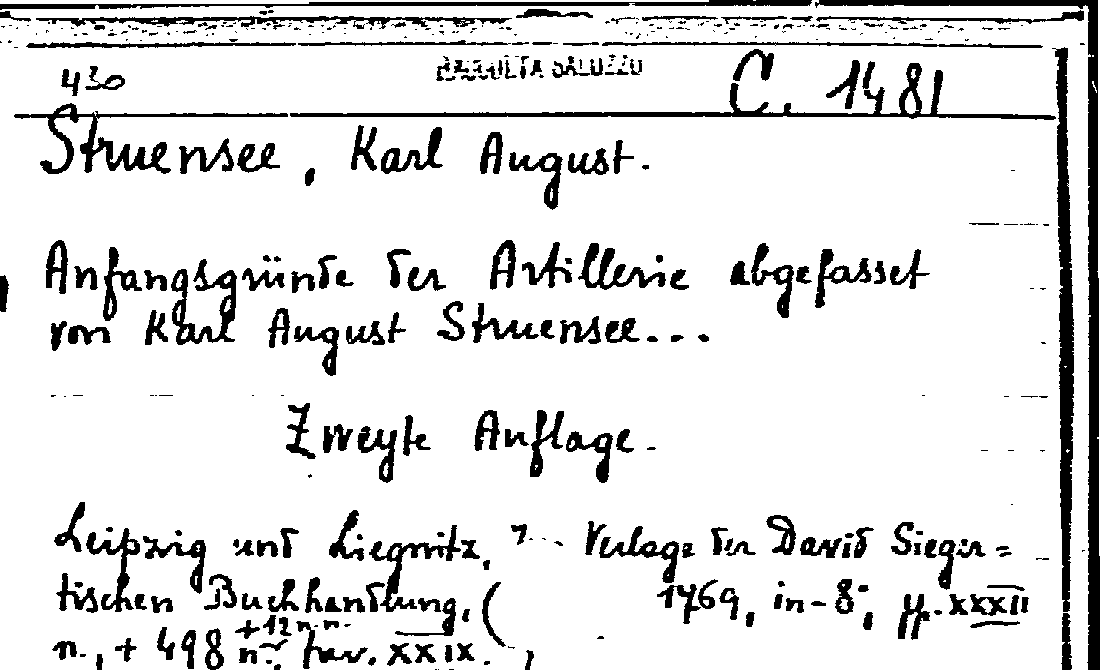 430 RACCOLTA SALUZZO C. 1481
Struensee, Karl August.
Anfangsgründe der Artillerie abgefasset
von Karl August Struensee...
Zweyte Auflage.
Leipzig und Liegnitz, Verlage der David Sieger=
tischen Buchhandlung, ( 1769, in-8°, pp. XXXII
+ 12 n.n.
n., + 498 n., tav. XXIX.